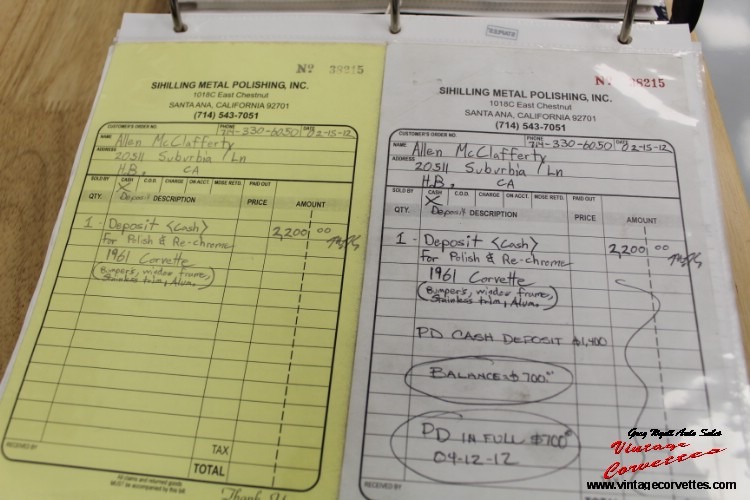 Nº 38215
SIHILLING METAL POLISHING, INC.
1018C East Chestnut
SANTA ANA, CALIFORNIA 92701
(714) 543-7051
CUSTOMER'S ORDER NO. PHONE 714-330-6050 DATE 02-15-12
NAME Allen McClafferty
ADDRESS 20511 Suburbia Ln
H.B. CA
SOLD BY CASH C.O.D. CHARGE ON ACCT. MDSE. RETD. PAID OUT
X
QTY. Deposit DESCRIPTION PRICE AMOUNT
1 - Deposit <Cash> 2,200 00
For Polish & Re-chrome
1961 Corvette
(Bumpers, window frame,
Stainless trim, Alum.)
TAX
RECEIVED BY TOTAL
All claims and returned goods
MUST be accompanied by this bill
Thank
Nº 38215
SIHILLING METAL POLISHING, INC.
1018C East Chestnut
SANTA ANA, CALIFORNIA 92701
(714) 543-7051
CUSTOMER'S ORDER NO. PHONE 714-330-6050 DATE 02-15-12
NAME Allen McClafferty
ADDRESS 20511 Suburbia Ln
H.B. CA
SOLD BY CASH C.O.D. CHARGE ON ACCT. MDSE. RETD. PAID OUT
X
QTY. Deposit DESCRIPTION PRICE AMOUNT
1 - Deposit <Cash> 2,200 00
For Polish & Re-chrome
1961 Corvette
(Bumpers, window frame,
Stainless trim, Alum.)
PD CASH DEPOSIT $1,400
BALANCE $700
PD IN FULL $700
04-12-12
RECEIVED BY
Greg Wyatt Auto Sales
Vintage
Corvettes
www.vintagecorvettes.com